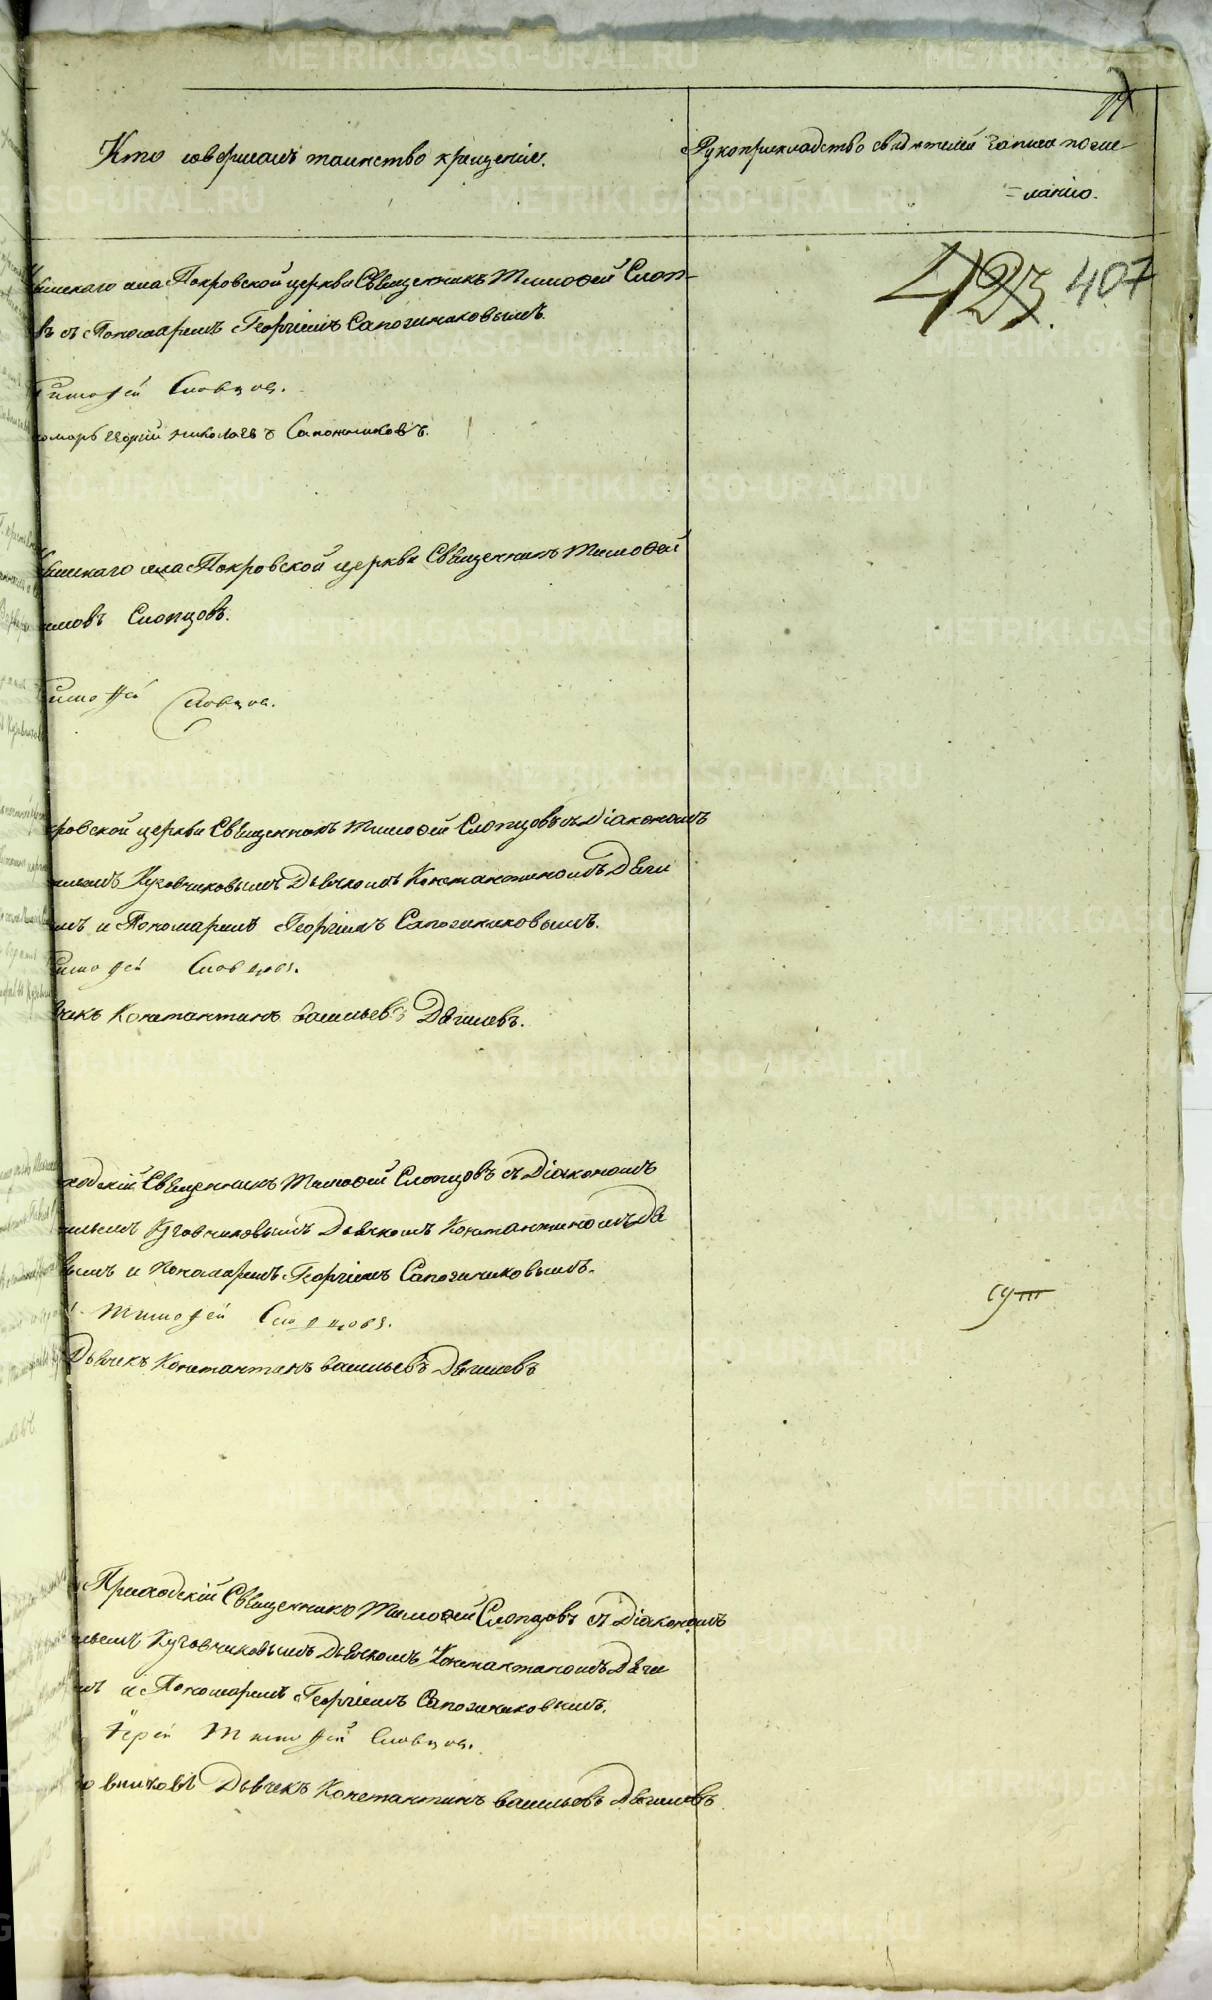 Кто совершалъ таинство крещенія.
Рукоприкладство свидѣтелей записи по же-
=ланію.
407
села Покровской церкви Священникъ Тимофей Слоп-
въ съ Пономаремъ Георгіемъ Сапожниковымъ.
Тимофей Словцов.
Георгий Николаевъ Сапожниковъ.
села Покровской церкви Священникъ Тимофей
Слопцовъ.
Тимофей Словцов.
церкви Священникъ Тимофей Слопцовъ съ Діакономъ
Куговчиковымъ Дьячкомъ Константиномъ Дяги
мъ и Пономаремъ Георгіемъ Сапожниковымъ.
Тимофей Словцовъ.
чекъ Константинъ васильевъ Дягилевъ.
Священникъ Тимофей Слопцовъ съ Діакономъ
Куговчиковымъ Дьячкомъ Константиномъ Дя
вымъ и Пономаремъ Георгіемъ Сапожниковымъ.
Тимофей Словцовъ.
Дьячекъ Константинъ васильевъ Дягилевъ
Приходскій Священникъ Тимофей Слопцовъ съ Діакономъ
Куговчиковымъ Дьячкомъ Константиномъ Дяги
мъ и Пономаремъ Георгіемъ Сапожниковымъ.
Іерей Тимофей Словцов.
Дьячекъ Константинъ васильевъ Дягилевъ